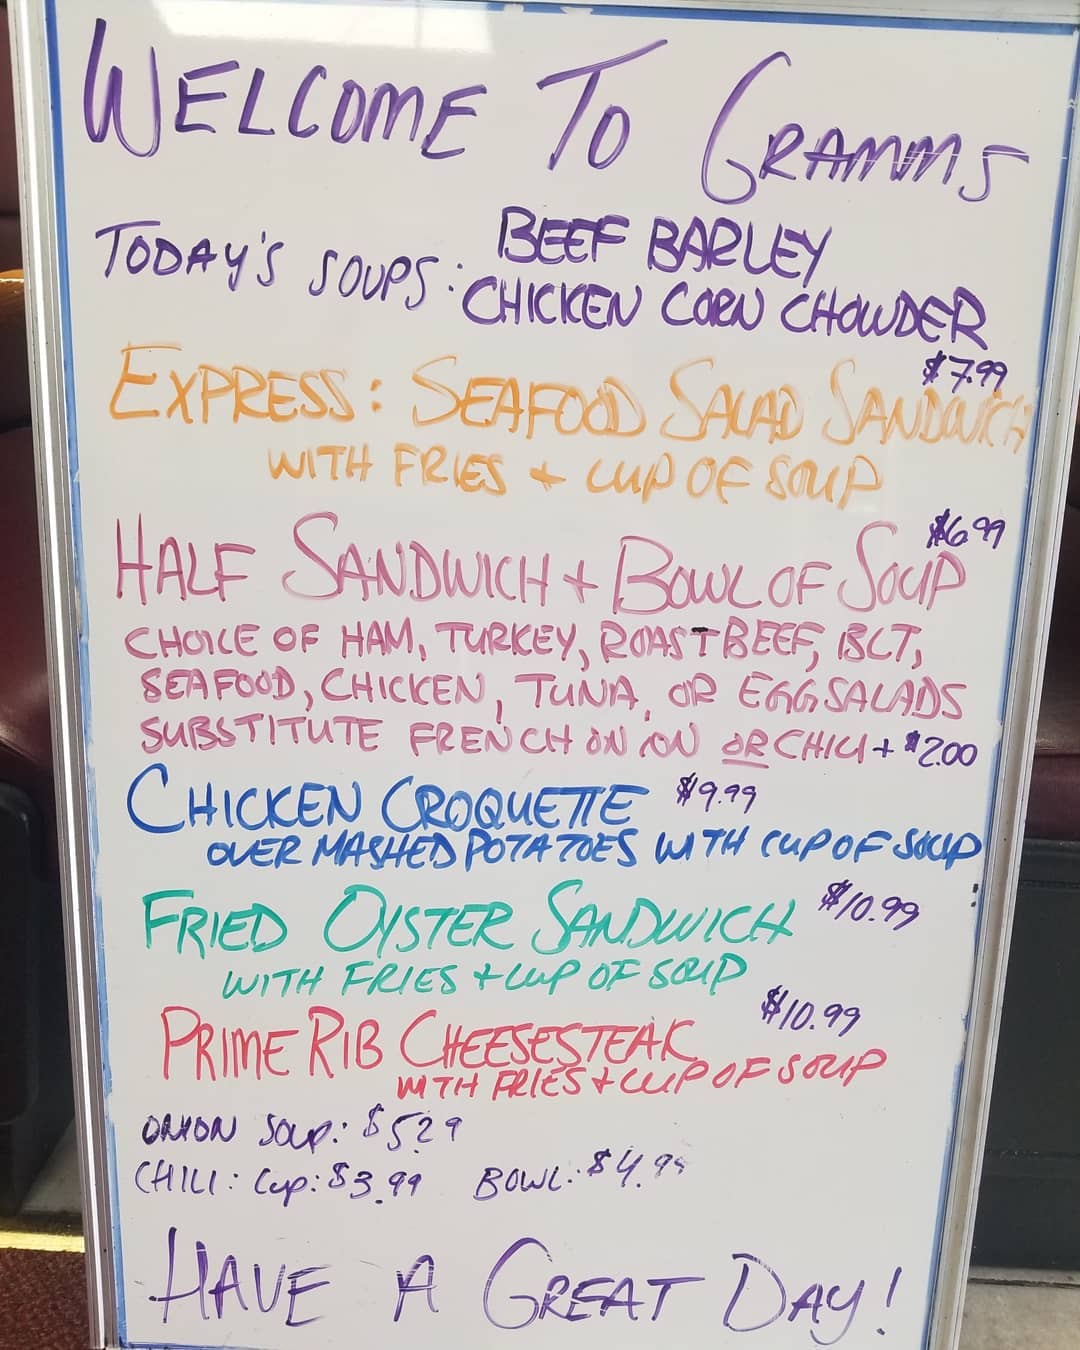 WELCOME TO GRAMMS
TODAY'S SOUPS: BEEF BARLEY
CHICKEN CORN CHOWDER
$7.99
EXPRESS: SEAFOOD SALAD SANDWICH
WITH FRIES + CUP OF SOUP
$6.99
HALF SANDWICH + BOWL OF SOUP
CHOICE OF HAM, TURKEY, ROAST BEEF, BLT,
SEAFOOD, CHICKEN, TUNA, OR EGG SALADS
SUBSTITUTE FRENCH ONION OR CHILI + $2.00
CHICKEN CROQUETTE $9.99
OVER MASHED POTATOES WITH CUP OF SOUP
FRIED OYSTER SANDWICH $10.99
WITH FRIES + CUP OF SOUP
$10.99
PRIME RIB CHEESESTEAK
WITH FRIES + CUP OF SOUP
ONION SOUP: $5.29
CHILI: Cup: $3.99 BOWL: $4.99
HAVE A GREAT DAY!